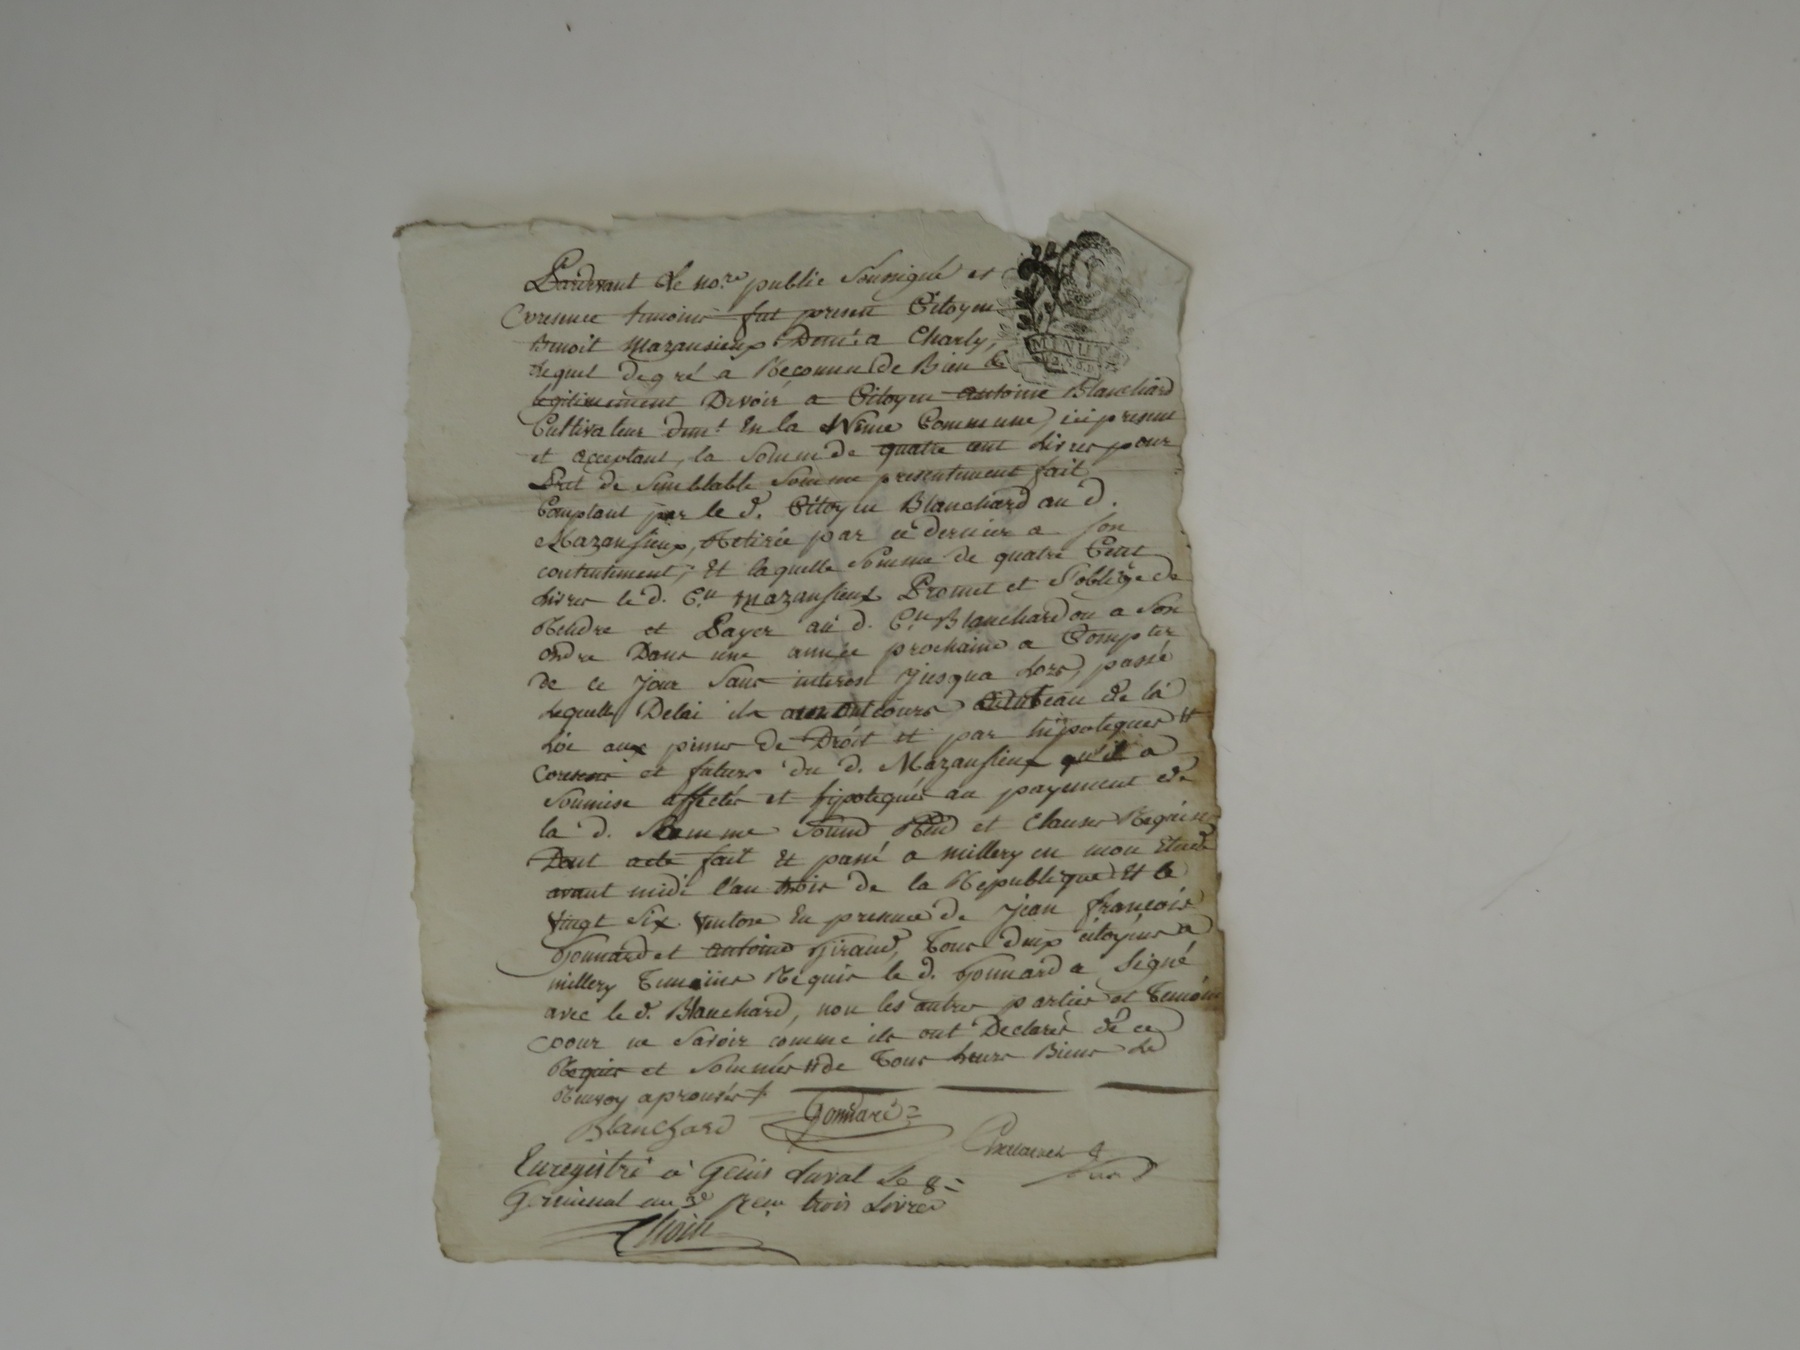 Pardevant Le no.re public Soussigné et
presence temoins fut present Citoyen
Benoit Mazansieux Dem.t a Charly,
Lequel de gré a Reconnu de Bien &
legitimement Devoir a Citoyen antoine Blanchard
Cultivateur dem.t En la même Commune, ici present
et acceptant, la Somme de quatre cent Livres pour
Prêt de Semblable Somme presentement fait
Comptant par le d. Citoyen Blanchard au d.
Mazansieux, Retirée par ce dernier a Son
contentement; Et laquelle Somme de quatre Cent
Livres le d. C.en Mazansieux Promet et S'oblige de
Rendre et Payer au d. C.en Blanchard ou a Son
ordre Dans une année prochaine a Compter
de ce jour Sans interest jusqua Lors, passé
Lequelle Delai ils auront cours au de la
Loi aux peines de Droit et par hipoteques #
presens et futurs du d. Mazansieux qu'il a
Soumise affectés et hipotequés au payement de
la d. Somme Soumd Rend et Clauses Requises
Dont acte fait Et passé a Millery en mon Etude
avant midi l'an trois de la Republique Et le
vingt Six Ventose En presence de Jean françois
Gonnard et antoine Giraud, Tous deux citoyens a
millery Temoins Requis le d. Gonnard a Signé
avec le d. Blanchard, non les autres parties et Temoin
pour ne Savoir comme ils ont Declarés de ce
Requis et Sommés # de Tous Leurs Biens Le
Renvoy aprouvés #
Blanchard Gonnard
Enregistré a Genis Laval Le 8
Germinal an 3e Reçu trois Livres
MINUTE